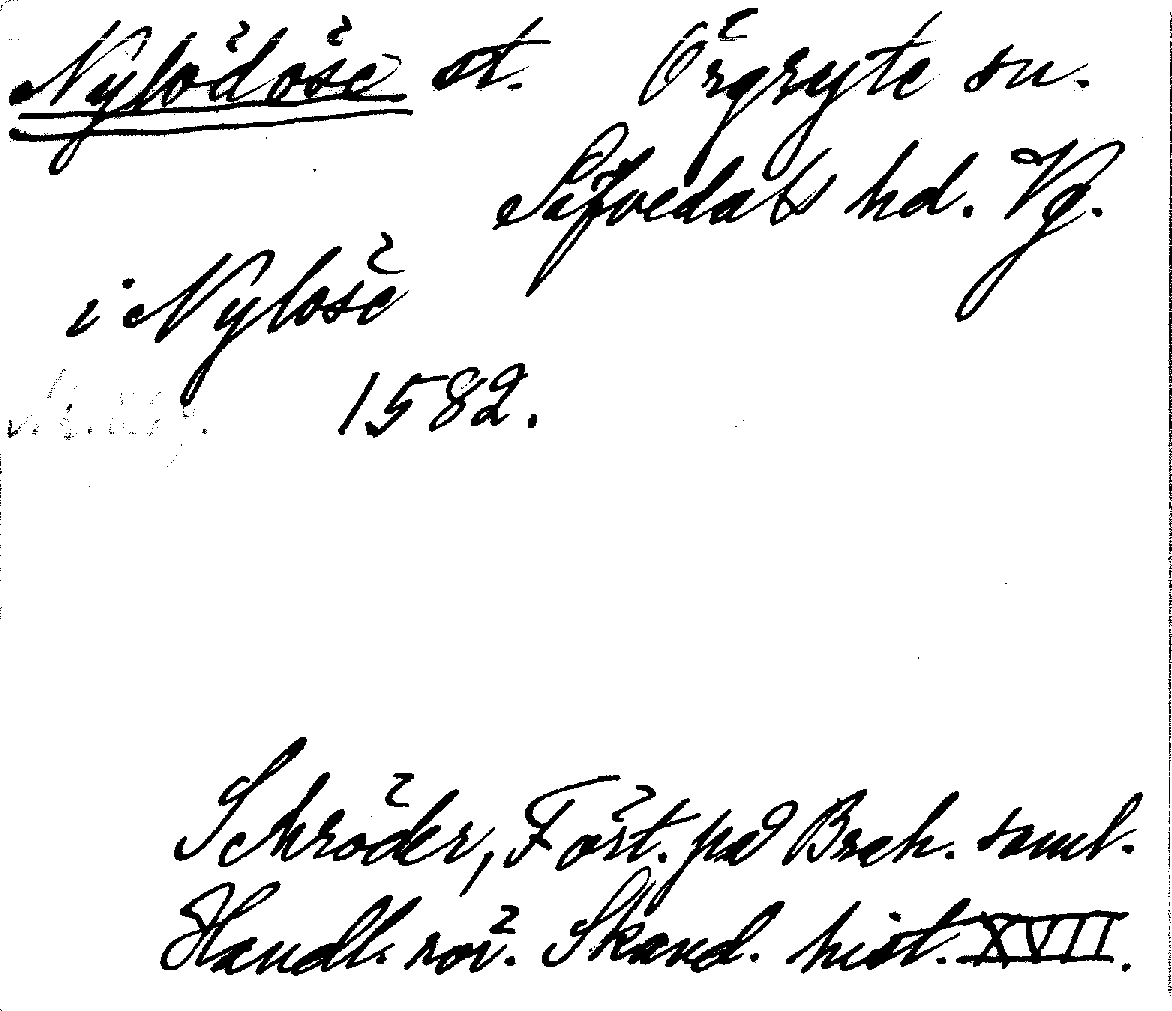 Nylödöse st. Örgryte sn.
Säfvedals hd. Vg.
i Nylöse
1582.
Schröder, Fört. på Breh. saml.
Handl. rör. Skand. hist. XVII.